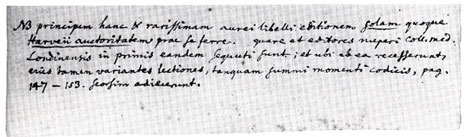 NB principem hanc & rarissimam aurei libelli editionem solam quoque
Harveii auctoritatem prae se ferre. quare et editores nuperi Coll. med.
Londinensis in primis eandem sequuti sunt; et ubi ab ea recesserunt,
ejus tamen variantes lectiones, tanquam summi momenti codicis, pag.
147 – 153. seorsim adjecerunt.